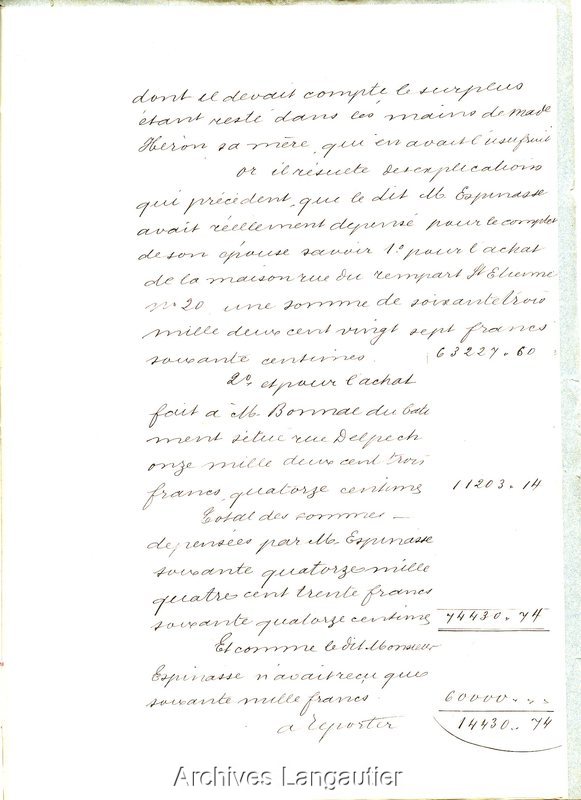 dont il devait compte le surplus
étant resté dans les mains de made
Héron sa mère, qui en avait l'usufruit
or il résulte des explications
qui précédent, que le dit M. Espinasse
avait réellement depensé pour le compte
de son épouse savoir 1.º pour l'achat
de la maison rue du rempart St Etienne
nº 20 une somme de soixante trois
mille deux cent vingt sept francs
soixante centimes. 63227.60
2º. et pour l'achat
fait à M. Bonnal du bati
ment situé rue Delpech
onze mille deux cent trois
francs quatorze centime 11203.14
Total des sommes _
depensées par M. Espinasse
soixante quatorze mille
quatre cent trente francs
soixante quatorze centime 74430.74
Et comme le dit Monsieur
Espinasse n'avait reçu que
soixante mille francs 60000. „ „
a reporter 14430. 74
Archives Langautier